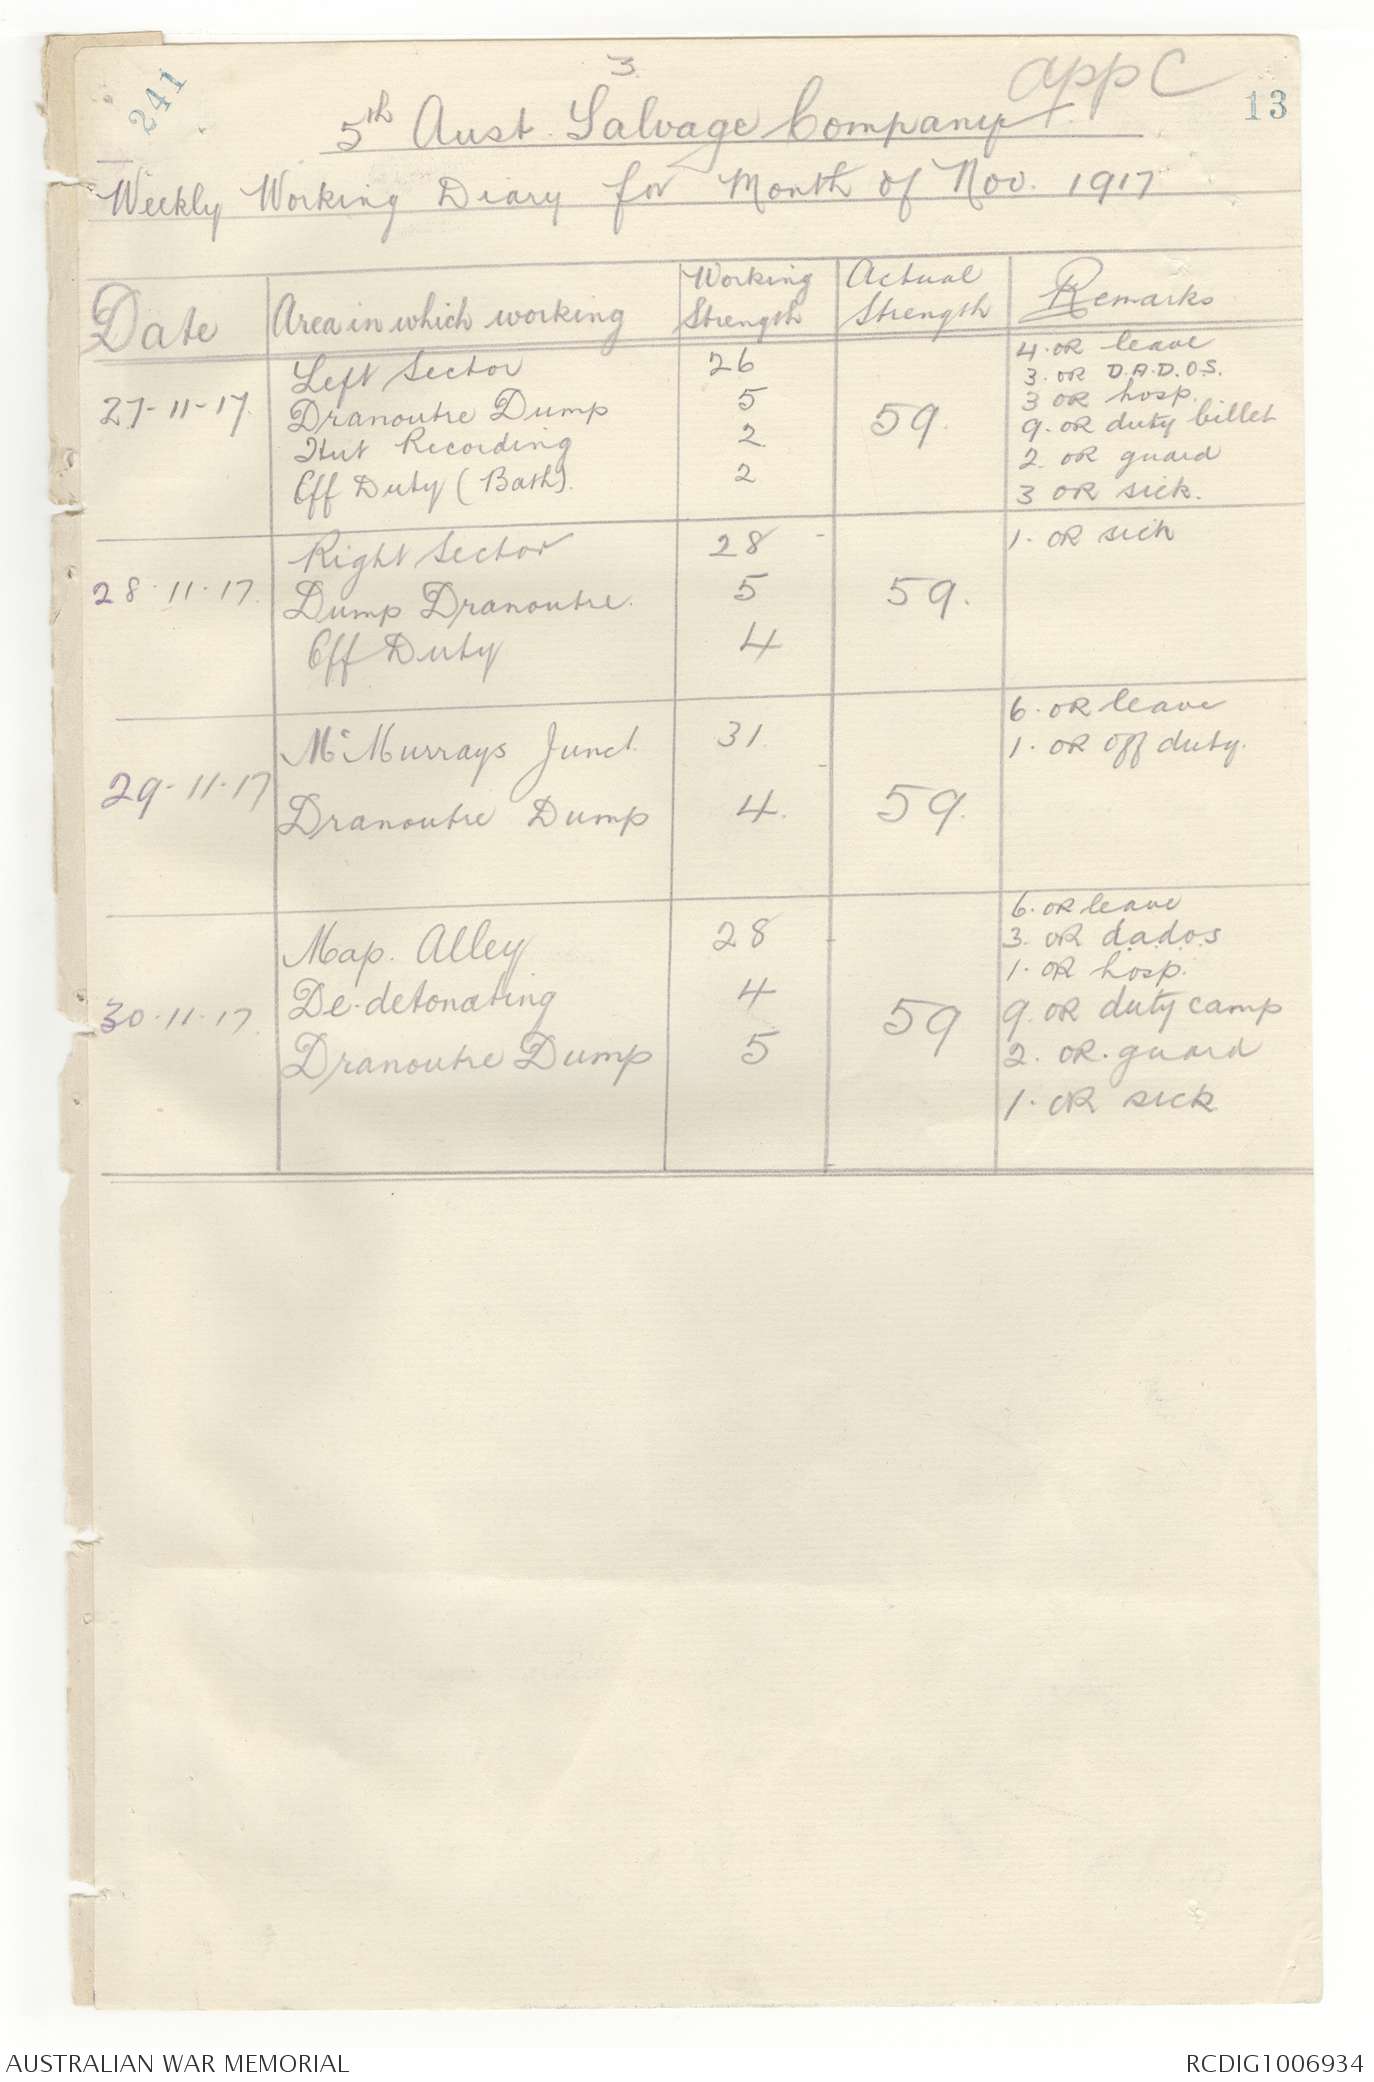 241
3.
app C
13
5th Aust. Salvage Company.
Weekly Working Diary for Month of Nov. 1917
Date
Area in which working
Working Strength
Actual Strength
Remarks
27-11-17.
Left Sector 26
Dranoutre Dump 5
Hut Recording 2.
Off Duty (Bath). 2
59.
4. OR leave
3. OR D.A.D.O.S.
3 OR hosp.
9. OR duty billet
2. OR guard
3 OR sick.
28-11-17.
Right Sector 28
Dump Dranoutre. 5
Off Duty 4
59.
1. OR sick
29-11-17
McMurrays Junct. 31.
Dranoutre Dump 4.
59.
6. OR leave
1. OR off duty.
30-11-17.
Map. Alley 28
De-detonating 4
Dranoutre Dump 5
59
6. OR leave
3. OR d.a.d.o.s
1. OR hosp.
9. OR duty camp
2. OR. guard
1. OR sick
AUSTRALIAN WAR MEMORIAL
RCDIG1006934